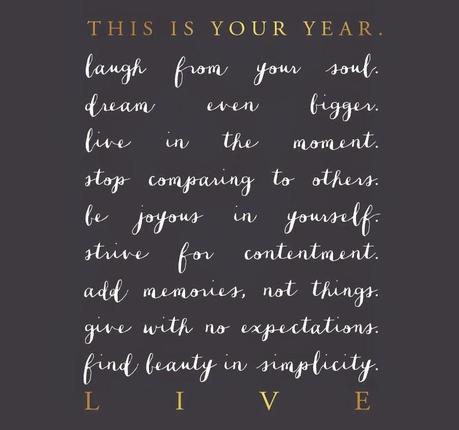 THIS IS YOUR YEAR.
laugh from your soul.
dream even bigger.
live in the moment.
stop comparing to others.
be joyous in yourself.
strive for contentment.
add memories, not things.
give with no expectations.
find beauty in simplicity.
LIVE